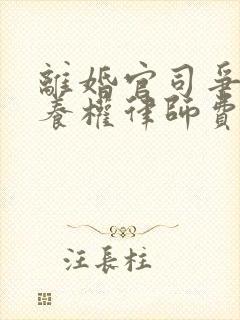 離婚官司爭
養權律師費
汪長柱